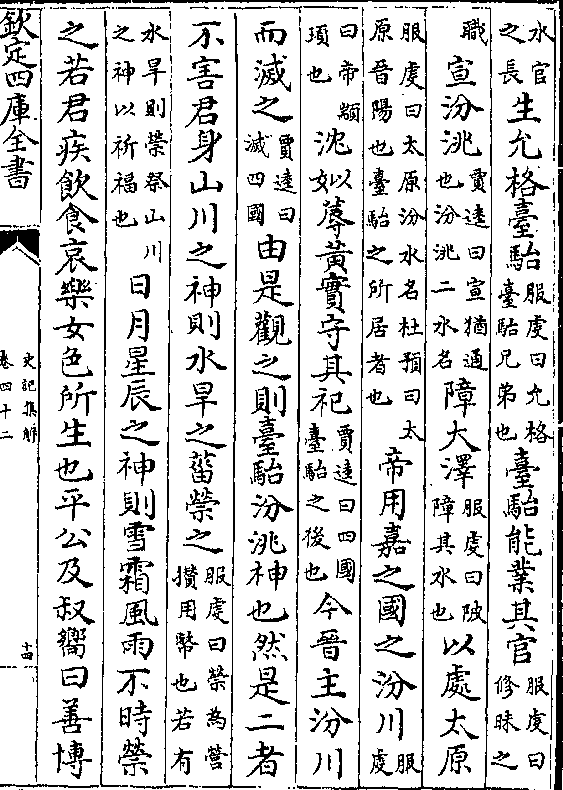 水官之長生允格臺駘服虔曰允格臺駘兄弟也臺駘能業其官服虔曰修昧之
職宣汾洮賈逵曰宣猶通也汾洮二水名障大澤服虔曰陂障其水也以處太原
服虔曰太原汾水名杜預曰太原晉陽也臺駘之所居者也帝用嘉之國之汾川服虔
曰帝顓頊也沈姒蓐黃實守其祀賈逵曰四國臺駘之後也今晉主汾川
而滅之賈逵曰滅四國由是觀之則臺駘汾洮神也然是二者
不害君身山川之神則水旱之菑禜之服虔曰禜為營攢用幣也若有
水旱則禜祭山川之神以祈福也日月星辰之神則雪霜風雨不時禜
之若君疾飲食哀樂女色所生也平公及叔嚮曰善博
欽定四庫全書
史記集解
卷四十二
十四